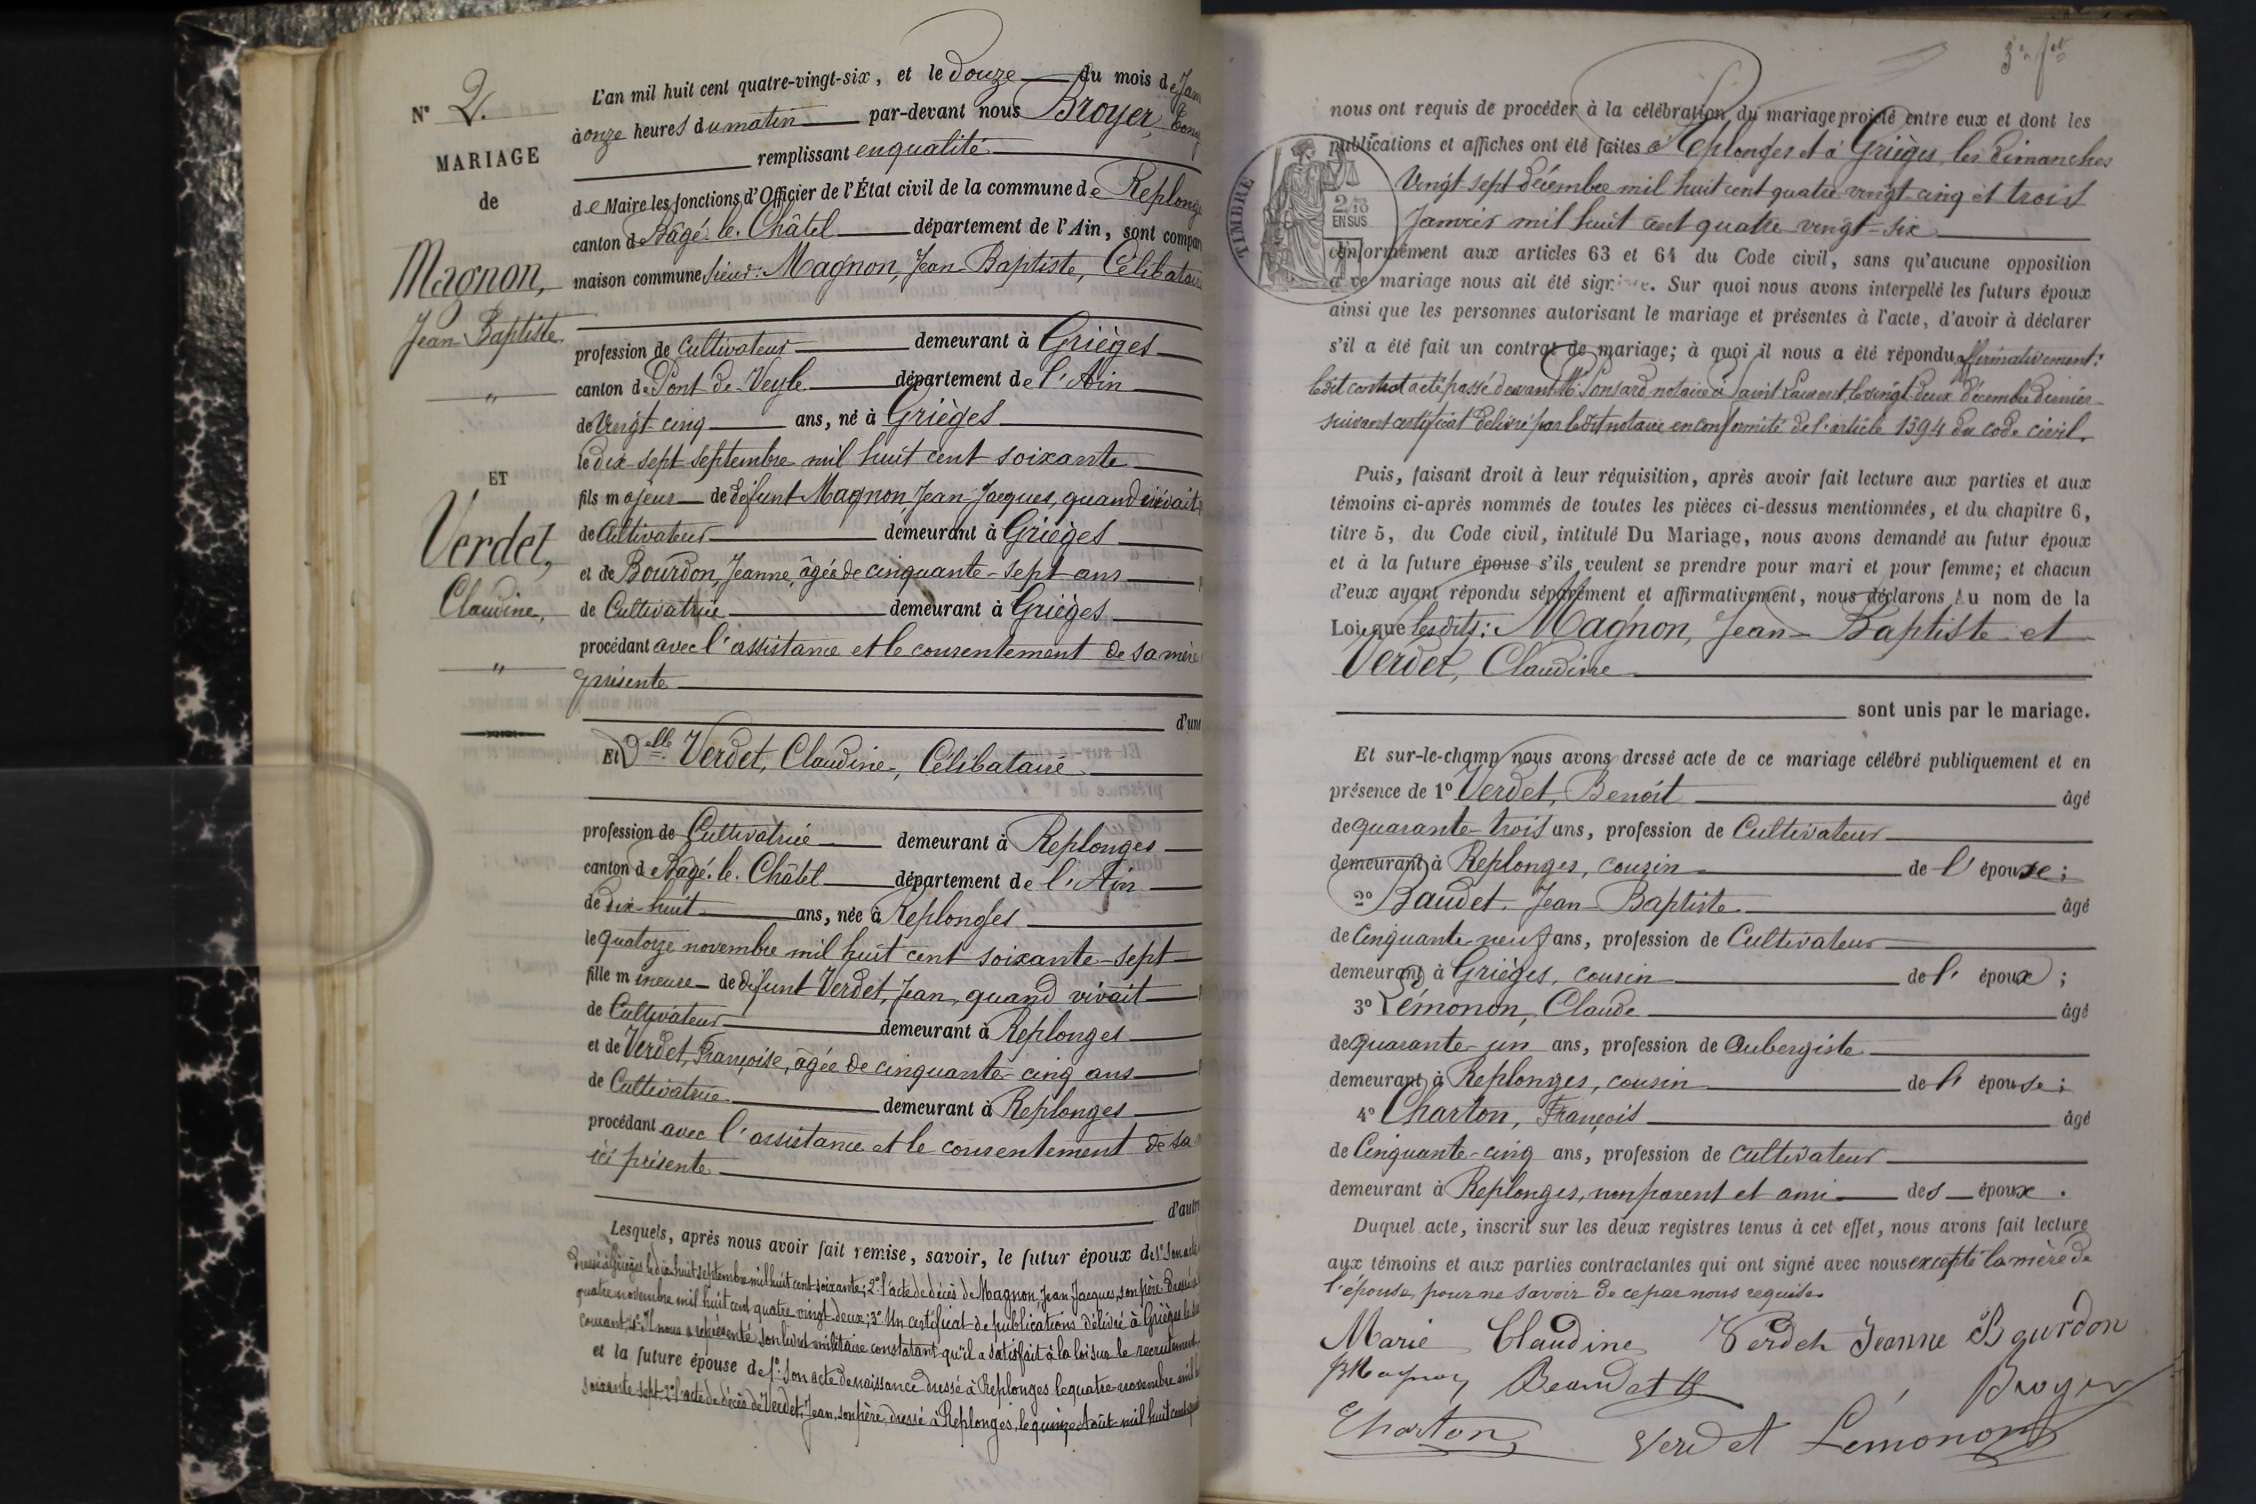 N° 2.
MARIAGE
de
Magnon,
Jean-Baptiste
"
ET
Verdet,
Claudine,
"
L'an mil huit cent quatre-vingt-six, et le douze du mois de Jan
à onze heures du matin par-devant nous Broyer
remplissant en qualité
de Maire les fonctions d'Officier de l'État civil de la commune de Replong
canton de Bâgé-le-Châtel département de l'Ain, sont compar
maison commune Sieur: Magnon, Jean-Baptiste, Célibatair
profession de Cultivateur demeurant à Grièges
canton de Pont-de-Veyle département de l'Ain
de vingt-cinq ans, né à Grièges
le dix-sept septembre mil huit cent soixante
fils majeur de défunt Magnon, Jean-Jacques, quand vivait
de Cultivateur demeurant à Grièges
et de Bourdon, Jeanne, âgée de cinquante-sept ans
de Cultivatrice demeurant à Grièges
procédant avec l'assistance et le consentement de sa mère
présente
d'une
Et Delle Verdet, Claudine, Célibataire
profession de Cultivatrice demeurant à Replonges
canton de Bâgé-le-Châtel département de l'Ain
de dix-huit ans, née à Replonges
le quatorze novembre mil huit cent soixante-sept
fille mineure de défunt Verdet, Jean, quand vivait
de Cultivateur demeurant à Replonges
et de Verdet, Françoise, âgée de cinquante-cinq ans
de Cultivatrice demeurant à Replonges
procédant avec l'assistance et le consentement de sa
ici présente
d'autre
Lesquels, après nous avoir fait remise, savoir, le futur époux de 1° Son acte
dressé à Grièges le dix-huit septembre mil huit cent soixante; 2° l'acte de décès de Magnon, Jean-Jacques, son père dressé
quatre novembre mil huit cent quatre-vingt-deux; 3° Un certificat de publications délivré à Grièges le
courant; 4° Il nous a représenté son livret militaire constatant qu'il a satisfait à la loi sur le recrutement
et la future épouse de 1°: Son acte de naissance dressé à Replonges le quatre novembre mil
soixante-sept; 2° l'acte de décès de Verdet, Jean, son père, dressé à Replonges, le quinze Août mil huit cent
3e ft
nous ont requis de procéder à la célébration du mariage projeté entre eux et dont les
publications et affiches ont été faites à Replonges et à Grièges, les dimanches
vingt-sept décembre mil huit cent quatre-vingt-cinq et trois
Janvier mil huit cent quatre-vingt-six
TIMBRE
2/10
EN SUS
conformément aux articles 63 et 64 du Code civil, sans qu'aucune opposition
à ce mariage nous ait été signifiée. Sur quoi nous avons interpellé les futurs époux
ainsi que les personnes autorisant le mariage et présentes à l'acte, d'avoir à déclarer
s'il a été fait un contrat de mariage; à quoi il nous a été répondu affirmativement:
ledit contrat a été passé devant Me Ponsard, notaire à Saint Laurent, le vingt-deux décembre dernier
suivant certificat délivré par ledit notaire en conformité de l'article 1394 du code civil.
Puis, faisant droit à leur réquisition, après avoir fait lecture aux parties et aux
témoins ci-après nommés de toutes les pièces ci-dessus mentionnées, et du chapitre 6,
titre 5, du Code civil, intitulé Du Mariage, nous avons demandé au futur époux
et à la future épouse s'ils veulent se prendre pour mari et pour femme; et chacun
d'eux ayant répondu séparément et affirmativement, nous déclarons Au nom de la
Loi, que lesdits: Magnon, Jean-Baptiste et
Verdet, Claudine
sont unis par le mariage.
Et sur-le-champ nous avons dressé acte de ce mariage célébré publiquement et en
présence de 1° Verdet, Benoît âgé
de quarante-trois ans, profession de Cultivateur
demeurant à Replonges, cousin de l'épouse;
2° Baudet, Jean-Baptiste âgé
de Cinquante-neuf ans, profession de Cultivateur
demeurant à Grièges, cousin de l'époux;
3° Lémonon, Claude âgé
de quarante-un ans, profession de Aubergiste
demeurant à Replonges, cousin de l'épouse;
4° Charton, François âgé
de Cinquante-cinq ans, profession de cultivateur
demeurant à Replonges, non parent et ami des époux.
Duquel acte, inscrit sur les deux registres tenus à cet effet, nous avons fait lecture
aux témoins et aux parties contractantes qui ont signé avec nous excepté la mère de
l'épouse, pour ne savoir de ce par nous requise.
Marie Claudine Verdet Jeanne Bourdon
JB Magnon Beaudet JB Broyer
Charton Verdet Lémonon